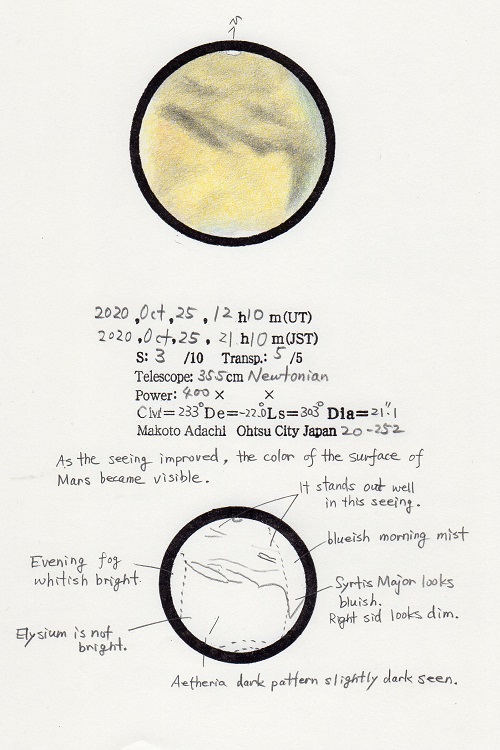 N
2020 ,Oct, 25, 12 h10 m(UT)
2020 ,Oct, 25, 21 h10 m(JST)
S: 3 /10 Transp.: 5 /5
Telescope: 355cm Newtonian
Power: 400 × ×
CM= 233° De=-22.0 Ls= 303° Dia= 21".1
Makoto Adachi Ohtsu City Japan 20-252
As the seeing improved, the color of the surface of
Mars became visible.
It stands out well
in this seeing.
blueish morning mist
Evening fog
whitish bright.
Syrtis Major looks
bluish.
Right sid looks dim.
Elysium is not
bright.
Aetheria dark pattern slightly dark seen.